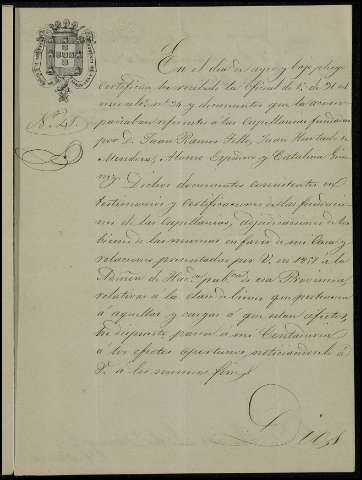 En el día de ayer y bajo pliego
certificado he recibido la Oficial de V. de 21 del
actual nº 24 y documentos que la acom-
pañaban referentes á las Capellanías fundadas
Nº 25.
por D. Juan Ramos Tello, Juan Hurtado de
Mendoza, Alonso Espino y Catalina
Dichos documentos consistentes en
testimonios y certificaciones de las fundacio-
nes de las Capellanías, adjudicaciones de los
bienes de las mismas en favor de mi Casa y
relaciones presentadas por V. en 1851 á la
Admon de Hacda pubca de esa Provincia
relativas á la clase de bienes que pertenecen
á aquellas y cargas á que están afectos,
he dispuesto pasen á mi Contaduría
á los efectos oportunos, noticiándolo á
V. á los mismos fines
Dios